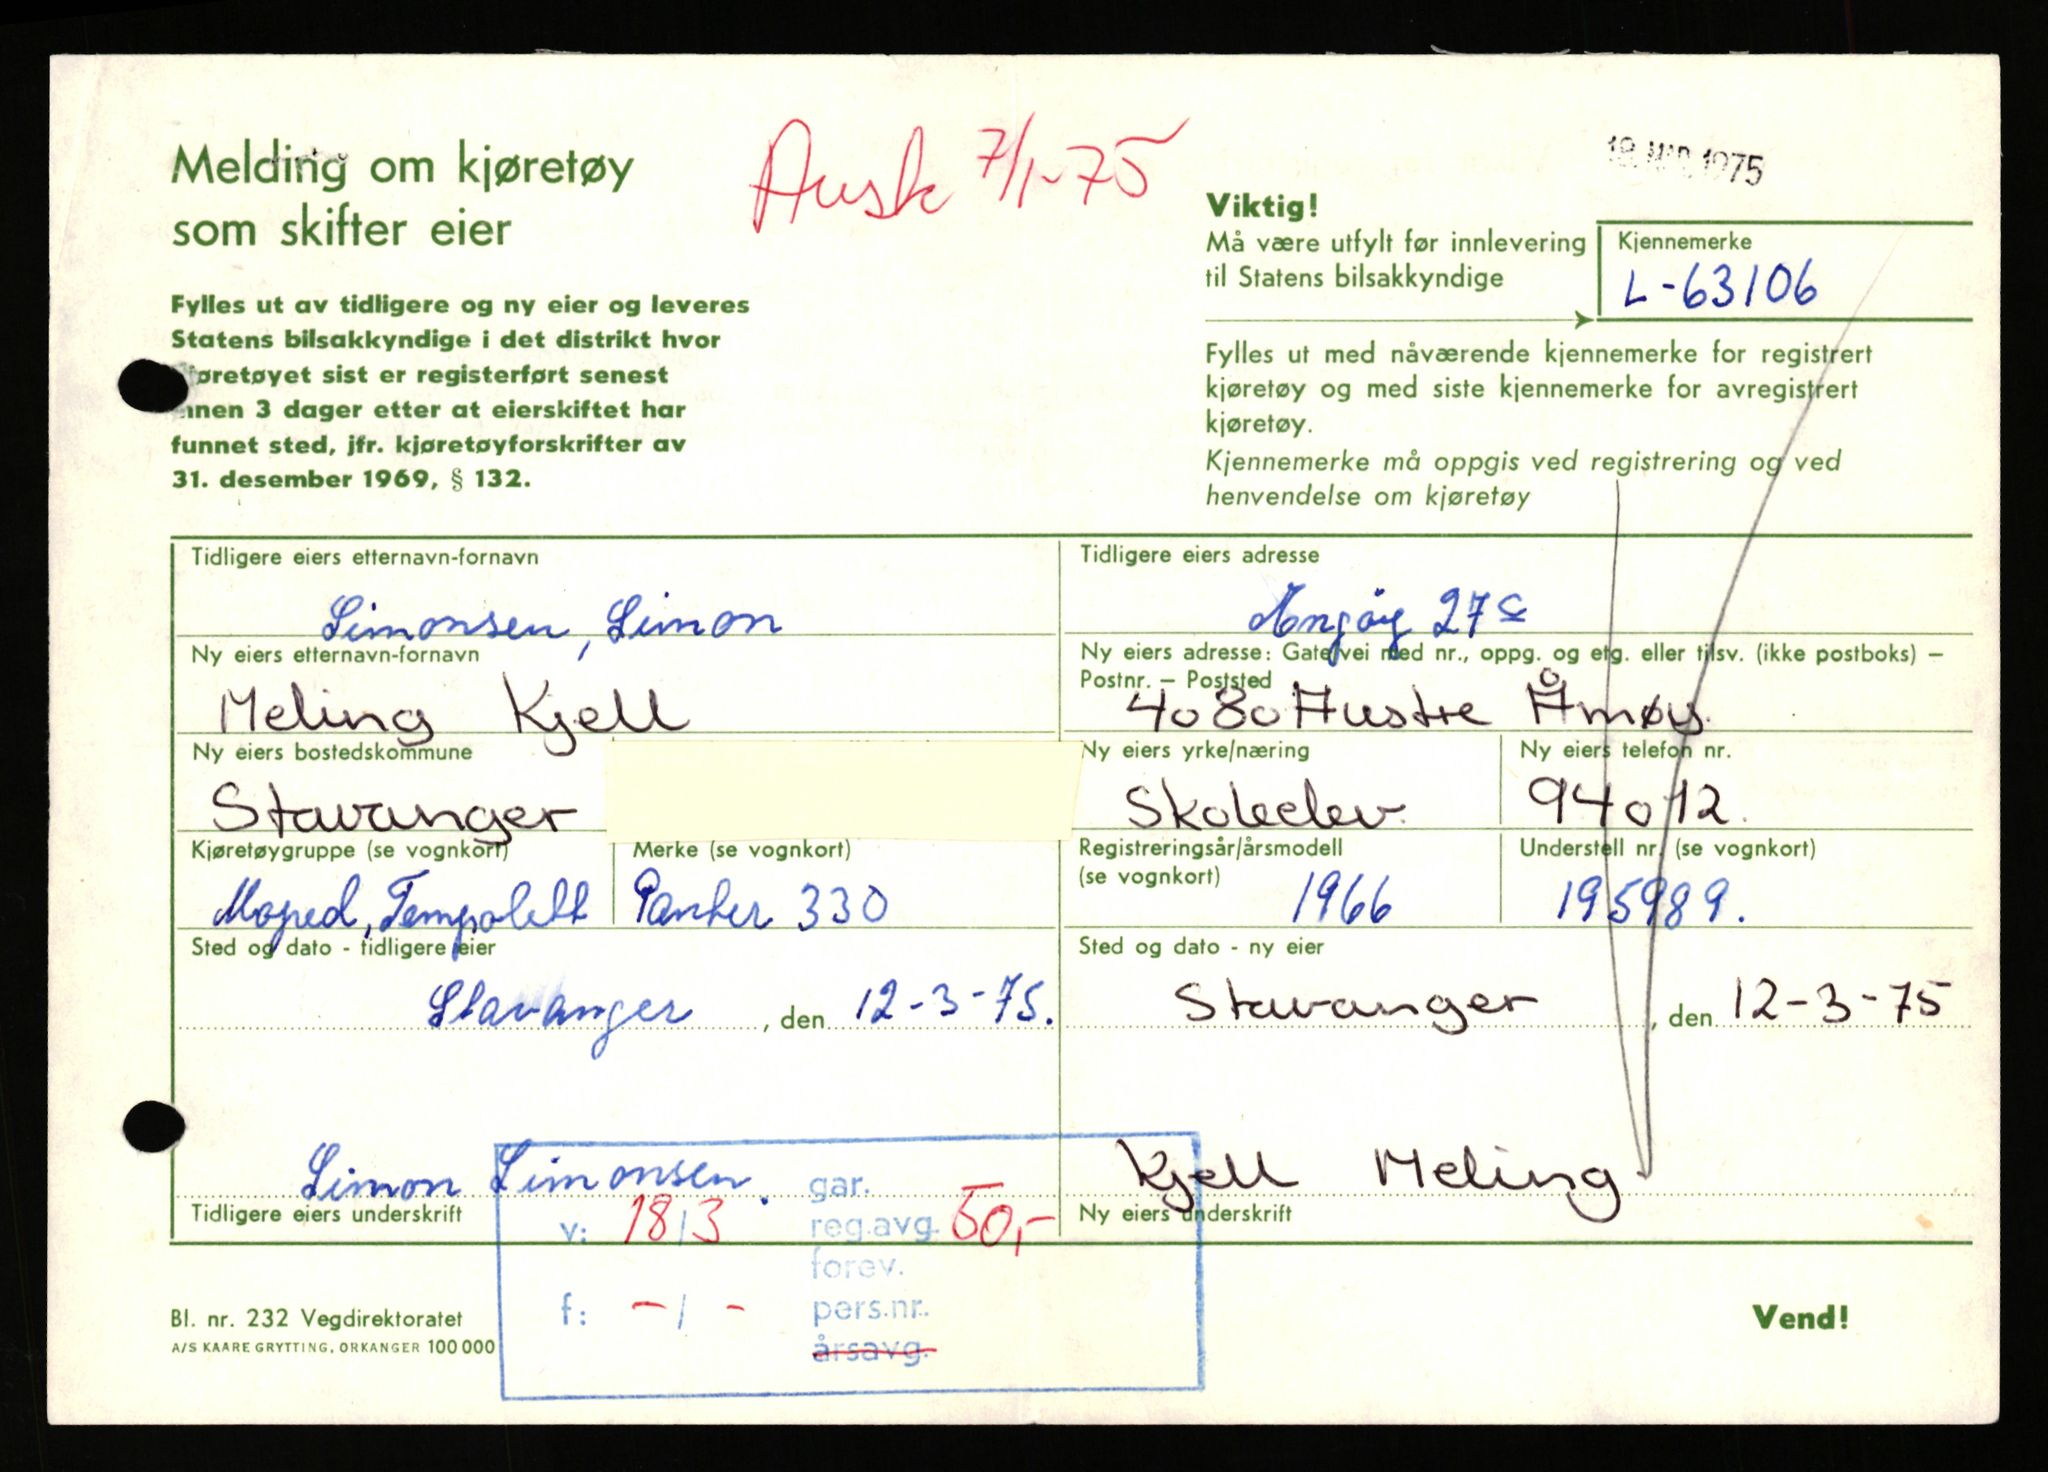 Melding om kjøretøy
som skifter eier
Husk 7/1-75
1975
Fylles ut av tidligere og ny eier og leveres
Statens bilsakkyndige i det distrikt hvor
kjøretøyet sist er registerført senest
innen 3 dager etter at eierskiftet har
funnet sted, jfr. kjøretøyforskrifter av
31. desember 1969, § 132.
Viktig!
Må være utfylt før innlevering
til Statens bilsakkyndige
Kjennemerke
L-63106
Fylles ut med nåværende kjennemerke for registrert
kjøretøy og med siste kjennemerke for avregistrert
kjøretøy.
Kjennemerke må oppgis ved registrering og ved
henvendelse om kjøretøy
Tidligere eiers etternavn-fornavn
Simonsen, Simon
Tidligere eiers adresse
27 c
Ny eiers etternavn-fornavn
Meling Kjell
Ny eiers adresse: Gate/vei med nr., oppg. og etg. eller tilsv. (ikke postboks) –
Postnr. – Poststed
4080 Austre Åmøy.
Ny eiers bostedskommune
Stavanger
Ny eiers yrke/næring
Skoleelev.
Ny eiers telefon nr.
94012.
Kjøretøygruppe (se vognkort)
Moped, Tempolett
Merke (se vognkort)
Panter 330
Registreringsår/årsmodell
(se vognkort)
1966
Understell nr. (se vognkort)
195989.
Sted og dato - tidligere eier
Stavanger, den 12-3-75.
Sted og dato - ny eier
Stavanger, den 12-3-75
Simon Simonsen.
Tidligere eiers underskrift
Kjell Meling
Ny eiers underskrift
gar.
v: 18/3 reg.avg. 50,-
forev.
f: -/- pers.nr.
årsavg.
Bl. nr. 232 Vegdirektoratet
A/S KAARE GRYTTING, ORKANGER 100 000
Vend!